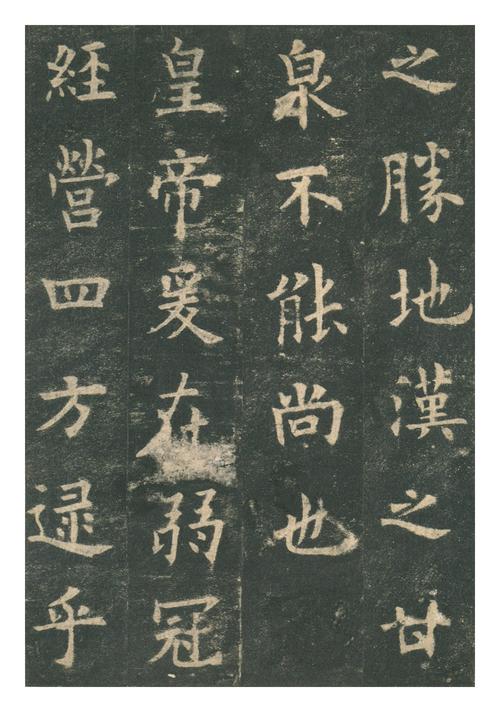 之勝地漢之甘
泉不能尚也
皇帝爰在弱冠
經營四方逮乎